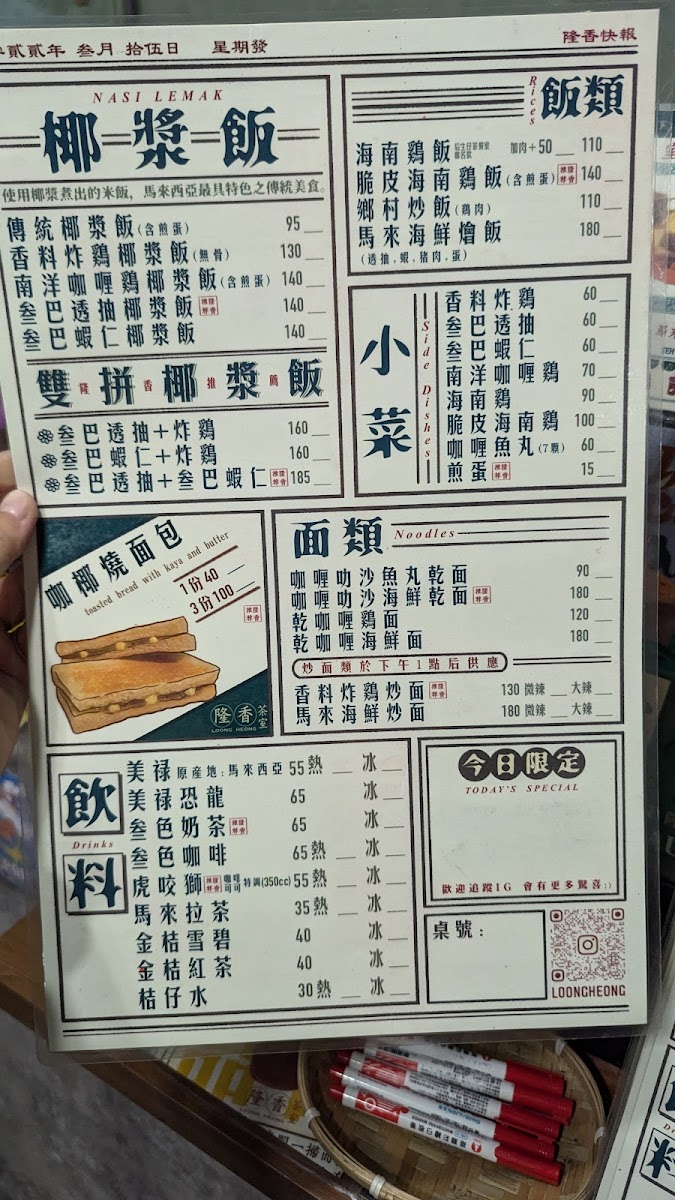 貳貳年 叁月 拾伍日 星期發
隆香快報
NASI LEMAK
椰漿飯
使用椰漿煮出的米飯,馬來西亞最具特色之傳統美食。
傳統椰漿飯(含煎蛋) 95
香料炸鷄椰漿飯(無骨) 130
南洋咖喱鷄椰漿飯(含煎蛋) 140
叁巴透抽椰漿飯 140
叁巴蝦仁椰漿飯 140
雙拼椰漿飯
隆香推薦
叁巴透抽+炸鷄 160
叁巴蝦仁+炸鷄 160
叁巴透抽+叁巴蝦仁 185
Rices
飯類
海南鷄飯 加肉+50 110
脆皮海南鷄飯(含煎蛋) 140
鄉村炒飯(鷄肉) 110
馬來海鮮燴飯 180
(透抽,蝦,猪肉,蛋)
小菜
Side Dishes
香料炸鷄 60
叁巴透抽 60
叁巴蝦仁 60
南洋咖喱鷄 70
海南鷄 90
脆皮海南鷄 100
咖喱魚丸(7顆) 60
煎蛋 15
咖椰燒面包
toasted bread with kaya and butter
1份40
3份100
隆香茶室
LOONG HEONG
面類 Noodles
咖喱叻沙魚丸乾面 90
咖喱叻沙海鮮乾面 180
乾咖喱鷄面 120
乾咖喱海鮮面 180
炒面類於下午1點后供應
香料炸鷄炒面 130 微辣 大辣
馬來海鮮炒面 180 微辣 大辣
飲料
Drinks
美禄 原産地:馬來西亞 55 熱 冰
美禄恐龍 65 冰
叁色奶茶 65 冰
叁色咖啡 65 熱 冰
虎咬獅 咖啡可可 特調(350cc) 55 熱 冰
馬來拉茶 35 熱 冰
金桔雪碧 40 冰
金桔紅茶 40 冰
桔仔水 30 熱 冰
今日限定
TODAY'S SPECIAL
歡迎追蹤IG 會有更多驚喜:)
桌號:
LOONGCHEONG